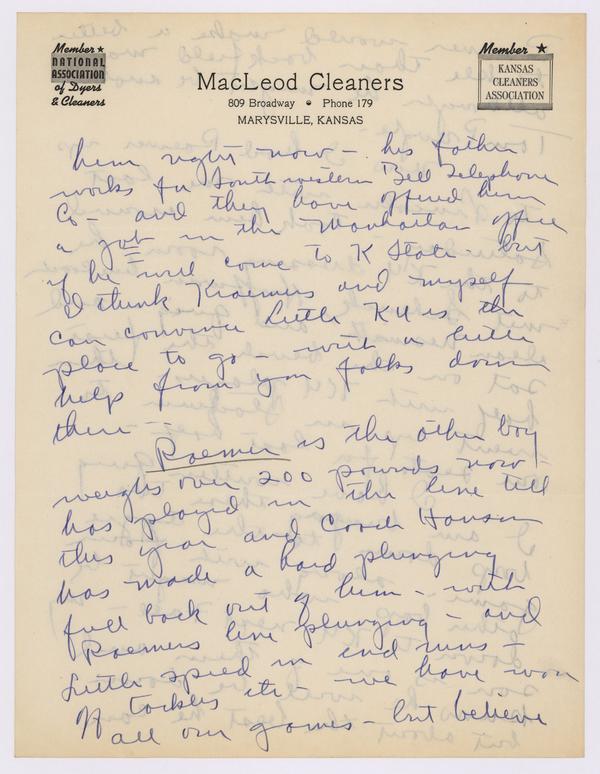 Member ★
NATIONAL
ASSOCIATION
of Dyers
& Cleaners
Member ★
KANSAS
CLEANERS
ASSOCIATION
MacLeod Cleaners
809 Broadway • Phone 179
MARYSVILLE, KANSAS
him right now – his father
works for Southwestern Bell Telephone
Co – and they have offered him
a job in the Manhattan office
if he will come to K State – but
I think Kraemers and myself
can convince Little KU is the
place to go – with a little
help from you folks down
there –
Roemer is the other boy
weighs over 200 pounds now –
has played in the line till
this year and Coach Hanson
has made a hard plunging
full back out of him – with
Roemers line plunging – and
Little speed in end runs –
off tackles etc – we have won
all our games – but believe